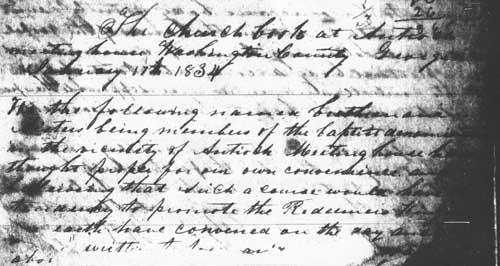 The Church book at Antioch
meetinghouse Washington County Georgia
February 11th 1834
We the following named brethren and
sisters being members of the baptist
in the vicinity of Antioch Meetinghouse
thought proper for our own convenience and
believing that such a course would
to promote the Redeemers
earth have convened on the day and